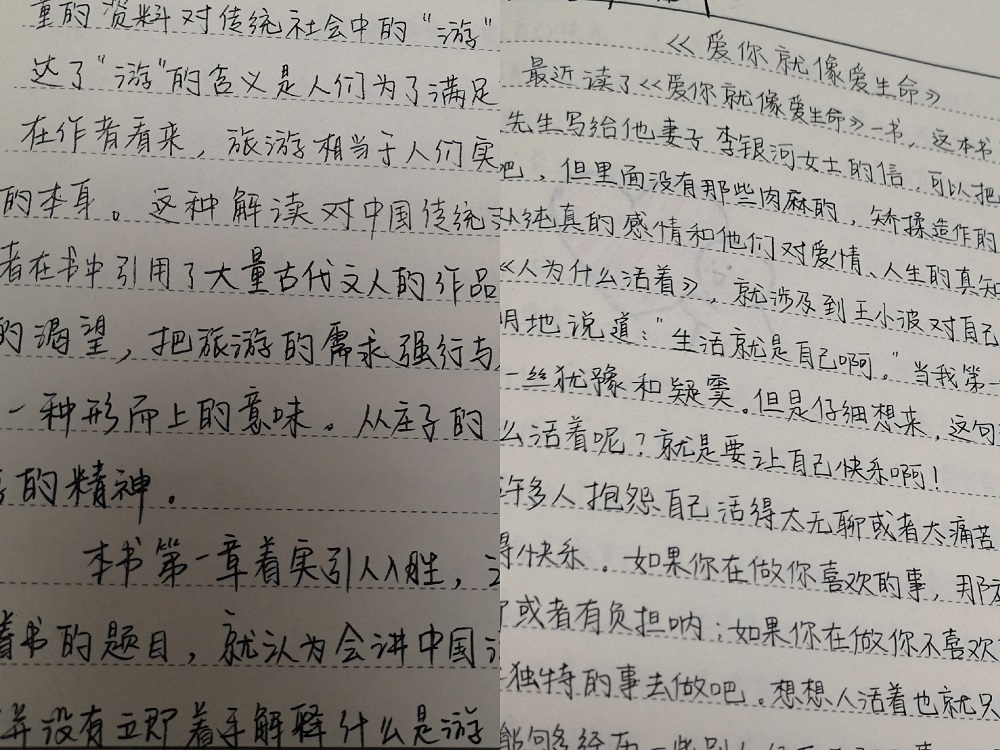 重的资料对传统社会中的“游”
达了“游”的含义是人们为了满足
在作者看来，旅游相当于人们实
的本身。这种解读对中国传统
者在书中引用了大量古代文人的作品
的渴望，把旅游的需求强行与
一种形而上的意味。从庄子的
的精神。
本书第一章着实引人入胜，
着书的题目，就认为会讲中国
并没有立即着手解释什么是游
《爱你就像爱生命》
最近读了《爱你就像爱生命》一书，这本书
先生写给他妻子李银河女士的信，可以把
吧，但里面没有那些肉麻的，矫揉造作的
纯真的感情和他们对爱情、人生的真知
《人为什么活着》，就涉及到王小波对自己
明地说道：“生活就是自己啊。”当我第一
一丝犹豫和疑窦。但是仔细想来，这句
么活着呢？就是要让自己快乐啊！
许多人抱怨自己活得太无聊或者太痛苦
得快乐。如果你在做你喜欢的事，那
或者有负担呐；如果你在做你不喜欢
独特的事去做吧。想想人活着也就只
能够